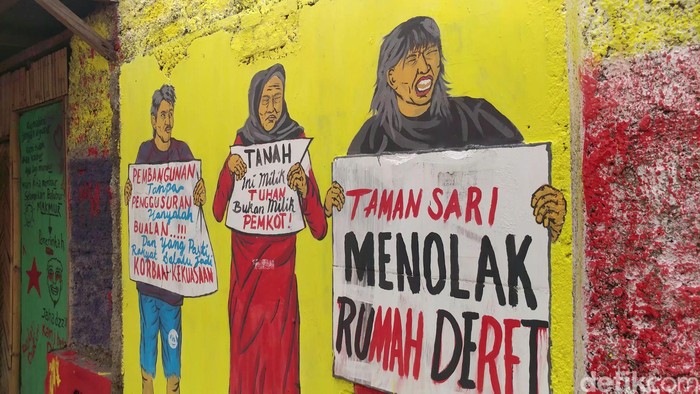 PEMBANGUNAN
Tanpa
PENGGUSURAN
Hanyalah
BUALAN..!!!
Dan Yang Pasti
Rakyat Selalu Jadi
KORBAN KEKUASAAN
TANAH
Ini Milik
TUHAN
Bukan Milik
PEMKOT!
TAMAN SARI
MENOLAK
RUMAH DERET
detikcom